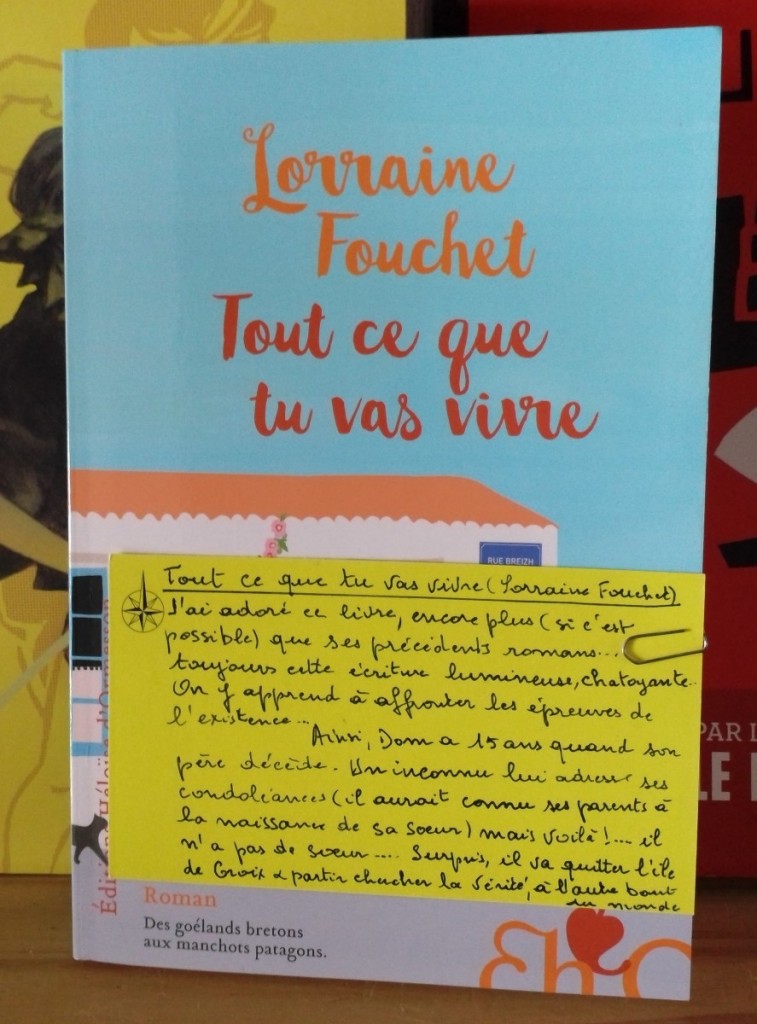 Lorraine
Fouchet
Tout ce que
tu vas vivre
RUE BREIZH
Tout ce que tu vas vivre (Lorraine Fouchet)
J'ai adoré ce livre, encore plus (si c'est
possible) que ses précédents romans...
toujours cette écriture lumineuse, chatoyante..
On y apprend à affronter les épreuves de
l'existence...
Ainsi, Dom a 15 ans quand son
père décède. Un inconnu lui adresse ses
condoléances (il aurait connu ses parents à
la naissance de sa soeur) mais voilà!... il
n'a pas de soeur.... Surpris, il va quitter l'île
de Groix & partir chercher la vérité, à l'autre bout
du monde
Roman
Des goélands bretons
aux manchots patagons.
EhO
Héloïse d'Ormesson
PAR L
LE